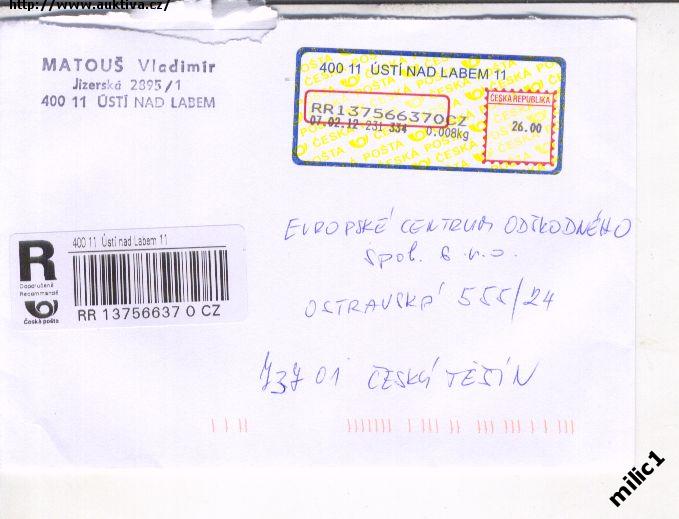 http://www.auktiva.cz/
MATOUŠ Vladimír
Jizerská 2895/1
400 11 ÚSTÍ NAD LABEM
400 11 ÚSTÍ NAD LABEM 11
RR137566370CZ
07.02.12-231 334 0.008kg
ČESKÁ REPUBLIKA
26.00
EVROPSKÉ CENTRUM ODŠKODNÉHO
spol. s r.o.
OSTRAVSKÁ 555/24
737 01 ČESKÝ TĚŠÍN
R
400 11 Ústí nad Labem 11
Doporučeně
Recommandé
Česká pošta
RR 13756637 0 CZ
milic1